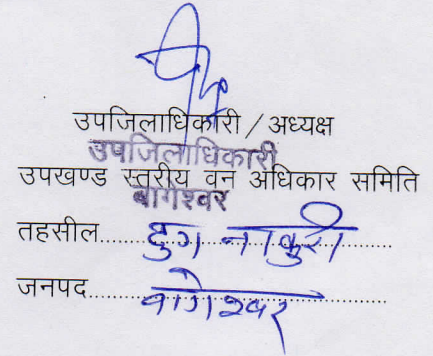 उपजिलाधिकारी / अध्यक्ष
उपजिलाधिकारी
उपखण्ड स्तरीय वन अधिकार समिति
बागेश्वर
तहसील.....दुग नाकुरी.....
जनपद.....बागेश्वर.....